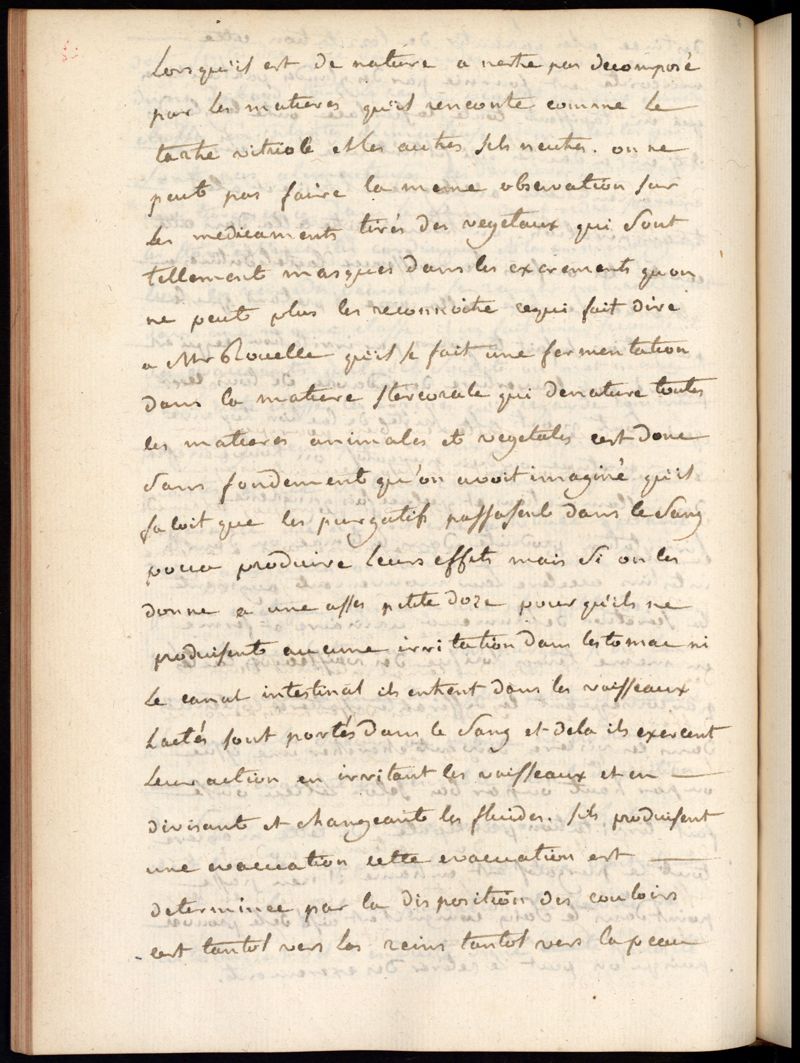 Lorsqu'il est de nature a nestre pas decomposé
par les matieres qu'il rencontre comme le
tartre vitriolé et les autres sels neutres. on ne
peut pas faire la meme observation sur
les medicaments tirés des vegetaux qui sont
tellement masques dans les excrements quon
ne peut plus les reconnoitre cequi fait dire
a Mr Rouelle qu'il se fait une fermentation
dans la matiere stercorale qui denature toutes
les matieres animales et vegetales cest donc
sans fondement qu'on avoit imaginé qu'il
faloit que les purgatifs passassent dans le sang
pour produire leurs effets mais si on les
donne a une asses petite doze pour qu'ils ne
produisent aucune irritation dans lestomac ni
le canal intestinal ils entrent dans les vaisseaux
lactés sont portés dans le sang et dela ils exercent
leur action en irritant les vaisseaux et en
divisant et changeant les fluides. sils produisent
une evacuation cette evacuation est
determinee par la disposition des couloirs
cest tantot vers les reins tantot vers la peau